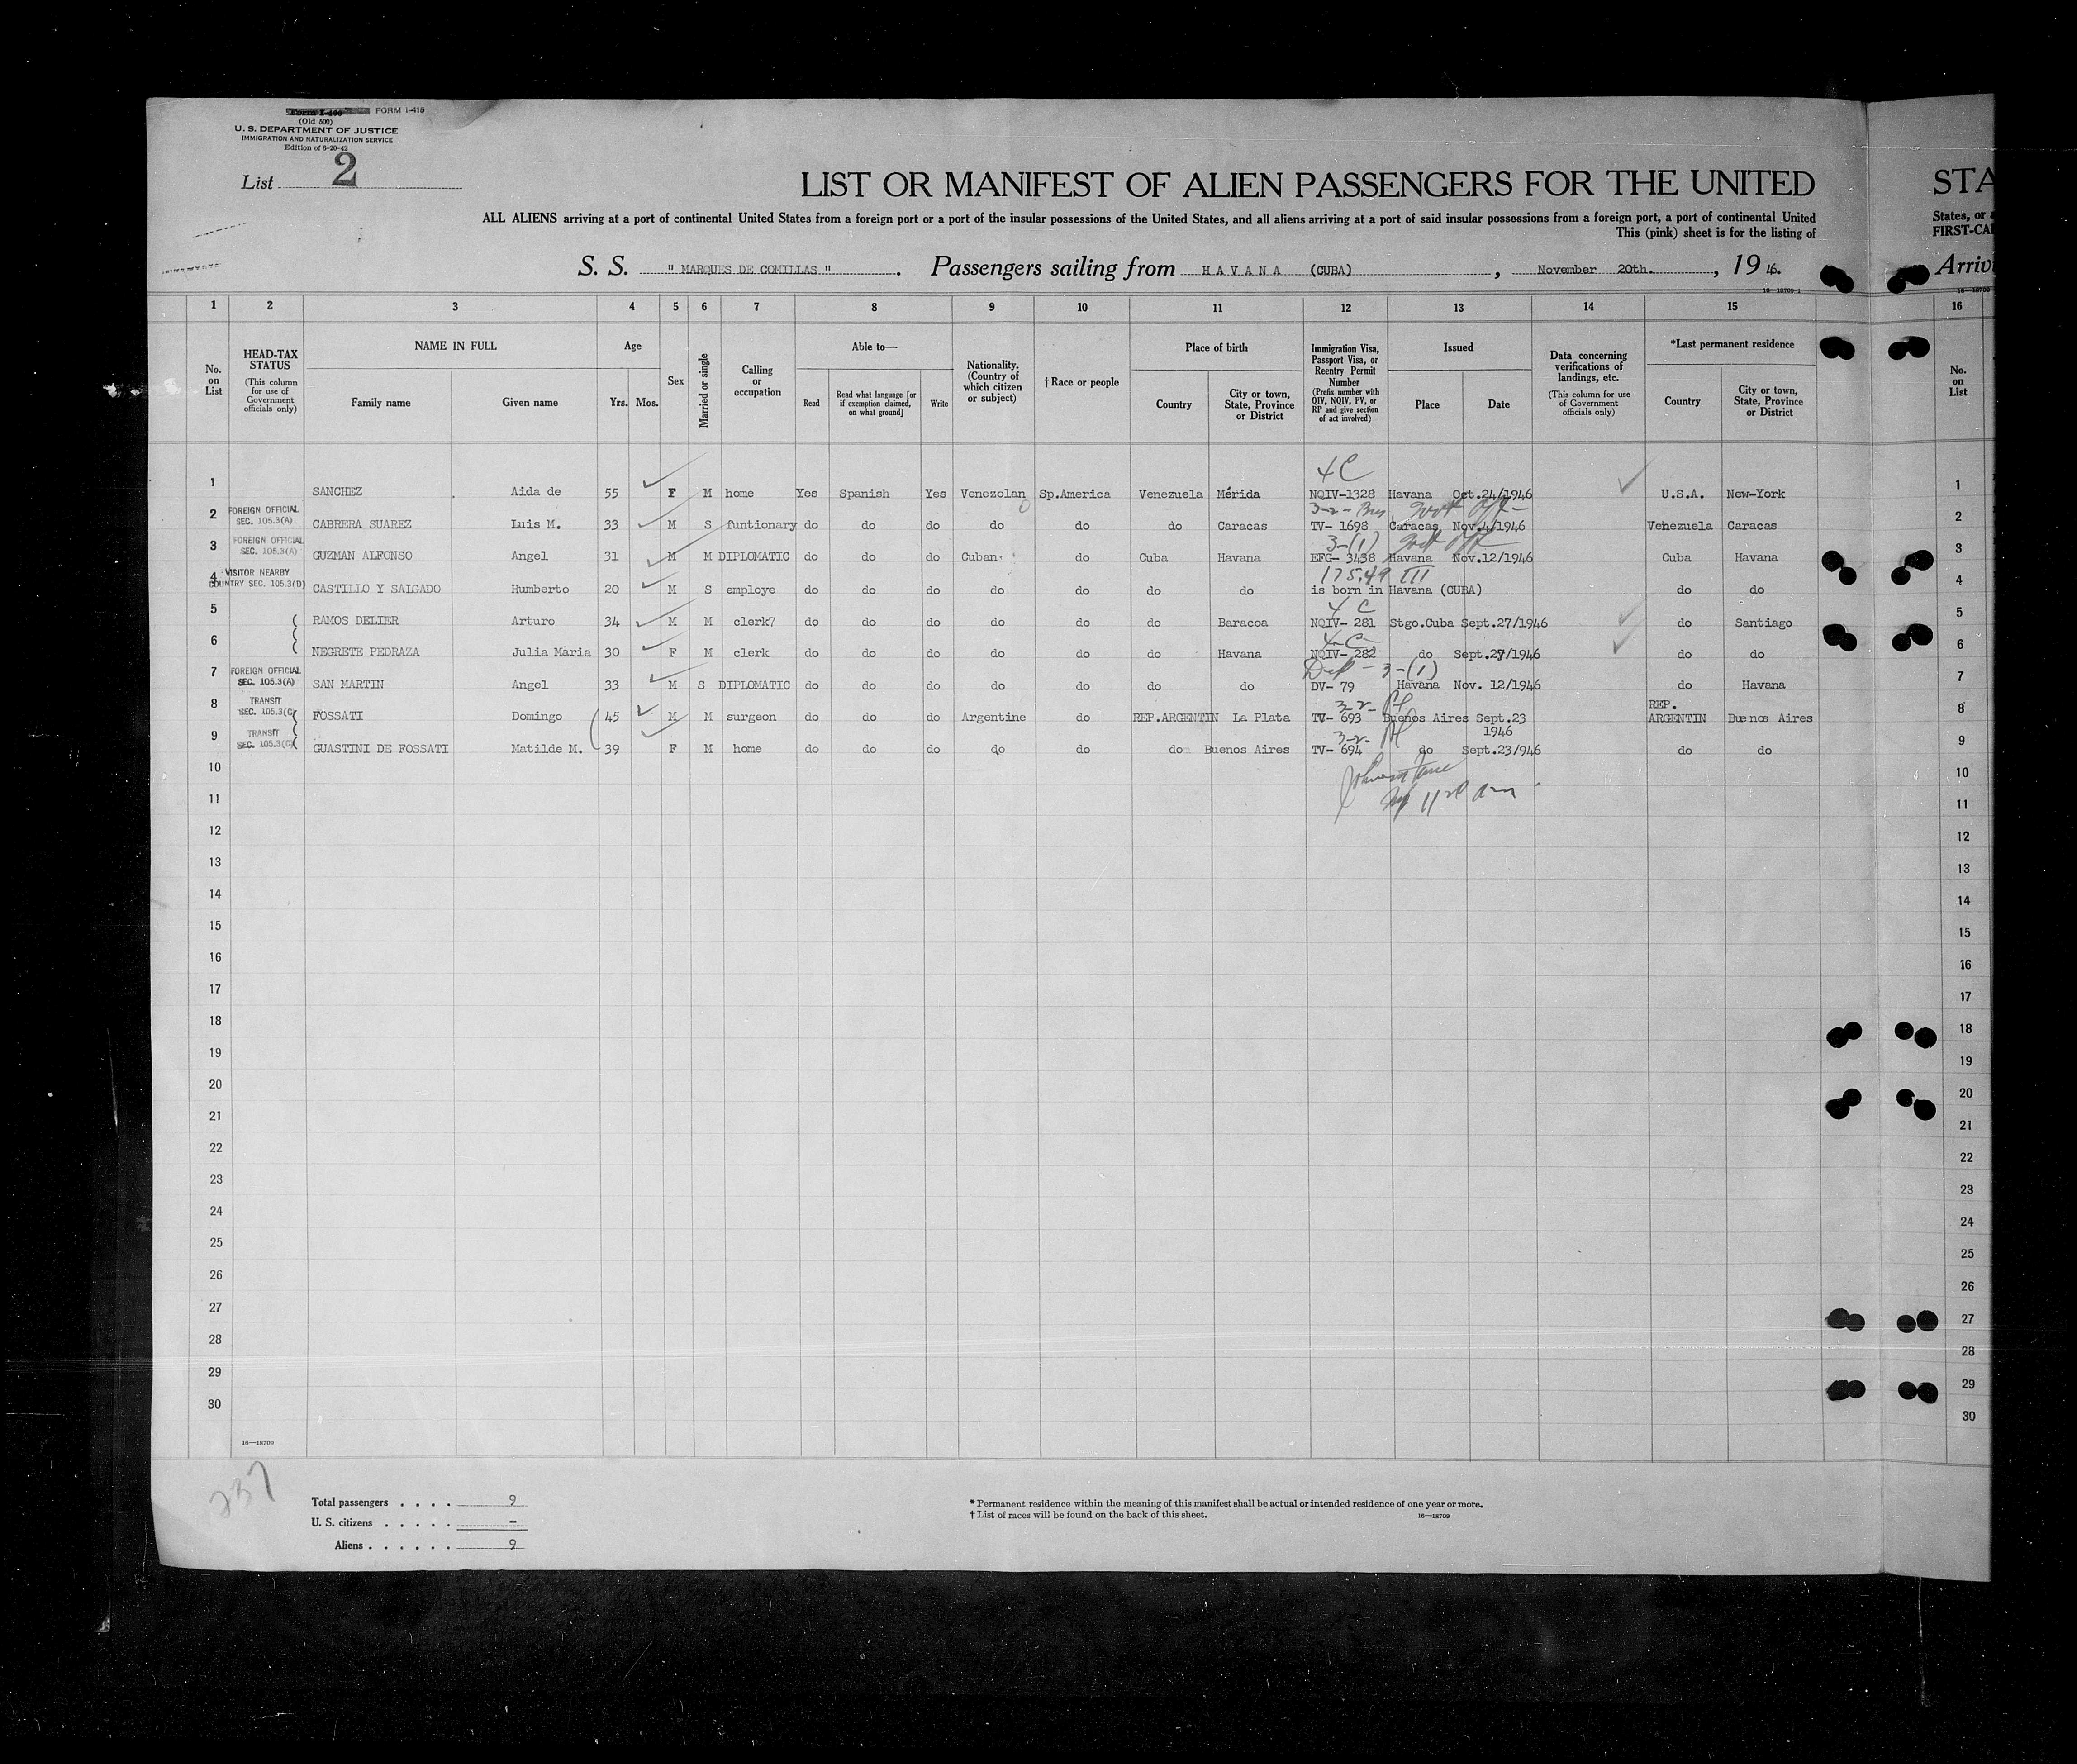 FORM I-415
(Old 500)
U. S. DEPARTMENT OF JUSTICE
IMMIGRATION AND NATURALIZATION SERVICE
Edition of 6-20-42
List 2
LIST OR MANIFEST OF ALIEN PASSENGERS FOR THE UNITED STA
ALL ALIENS arriving at a port of continental United States from a foreign port or a port of the insular possessions of the United States, and all aliens arriving at a port of said insular possessions from a foreign port, a port of continental United States, or
This (pink) sheet is for the listing of FIRST-CA
S. S. " MARQUES DE COMILLAS " . Passengers sailing from H A V A N A (CUBA) , November 20th. , 19 46. Arriv
1 2 3 4 5 6 7 8 9 10 11 12 13 14 15 16
No. on List
HEAD-TAX STATUS (This column for use of Government officials only)
NAME IN FULL Family name Given name
Age Yrs. Mos.
Sex
Married or single
Calling or occupation
Able to— Read Read what language [or if exemption claimed, on what ground] Write
Nationality. (Country of which citizen or subject)
† Race or people
Place of birth Country City or town, State, Province or District
Immigration Visa, Passport Visa, or Reentry Permit Number (Prefix number with QIV, NQIV, PV, or RP and give section of act involved)
Issued Place Date
Data concerning verifications of landings, etc. (This column for use of Government officials only)
*Last permanent residence Country City or town, State, Province or District
No. on List
4C
1 SANCHEZ Aida de 55 F M home Yes Spanish Yes Venezolan Sp.America Venezuela Mérida NQIV-1328 Havana Oct.24/1946 U.S.A. New-York 1
FOREIGN OFFICIAL SEC. 105.3(A) 3-2- Govt Off-
2 CABRERA SUAREZ Luis M. 33 M S funtionary do do do do do do Caracas TV- 1698 Caracas Nov.4/1946 Venezuela Caracas 2
FOREIGN OFFICIAL SEC. 105.3(A) 3-(1) Govt Off
3 GUZMAN ALFONSO Angel 31 M M DIPLOMATIC do do do Cuban do Cuba Havana EFG- 3438 Havana Nov.12/1946 Cuba Havana 3
VISITOR NEARBY COUNTRY SEC. 105.3(D) 175.49 III
4 CASTILLO Y SALGADO Humberto 20 M S employe do do do do do do do is born in Havana (CUBA) do do 4
4 C
5 RAMOS DELIER Arturo 34 M M clerk7 do do do do do do Baracoa NQIV- 281 Stgo.Cuba Sept.27/1946 do Santiago 5
4-C-
6 NEGRETE PEDRAZA Julia Maria 30 F M clerk do do do do do do Havana NQIV- 282 do Sept.27/1946 do do 6
FOREIGN OFFICIAL SEC. 105.3(A) 3-(1)
7 SAN MARTIN Angel 33 M S DIPLOMATIC do do do do do do do DV- 79 Havana Nov. 12/1946 do Havana 7
TRANSIT SEC. 105.3(C) 3-2-
8 FOSSATI Domingo 45 M M surgeon do do do Argentine do REP.ARGENTIN La Plata TV- 693 Buenos Aires Sept.23 1946 REP. ARGENTIN Buenos Aires 8
TRANSIT SEC. 105.3(C) 3-2-
9 GUASTINI DE FOSSATI Matilde M. 39 F M home do do do do do do Buenos Aires TV- 694 do Sept.23/946 do do 9
10 10
11 11
12 12
13 13
14 14
15 15
16 16
17 17
18 18
19 19
20 20
21 21
22 22
23 23
24 24
25 25
26 26
27 27
28 28
29 29
30 30
16—18709
237
Total passengers . . . . 9
U. S. citizens . . . . . –
Aliens . . . . . . 9
* Permanent residence within the meaning of this manifest shall be actual or intended residence of one year or more.
† List of races will be found on the back of this sheet.
16—18709